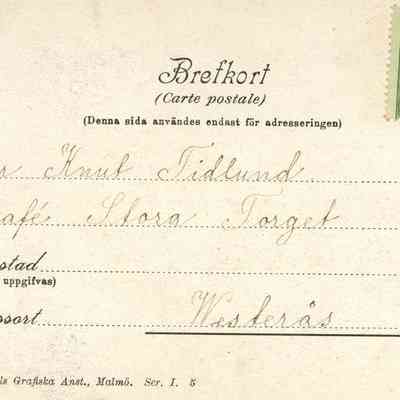 Brefkort
(Carte postale)
(Denna sida användes endast för adresseringen)
Knut Tidlund
afé Stora Torget
stad
uppgifvas)
Westerås
sort
ls Grafiska Anst., Malmö. Ser. I. 5